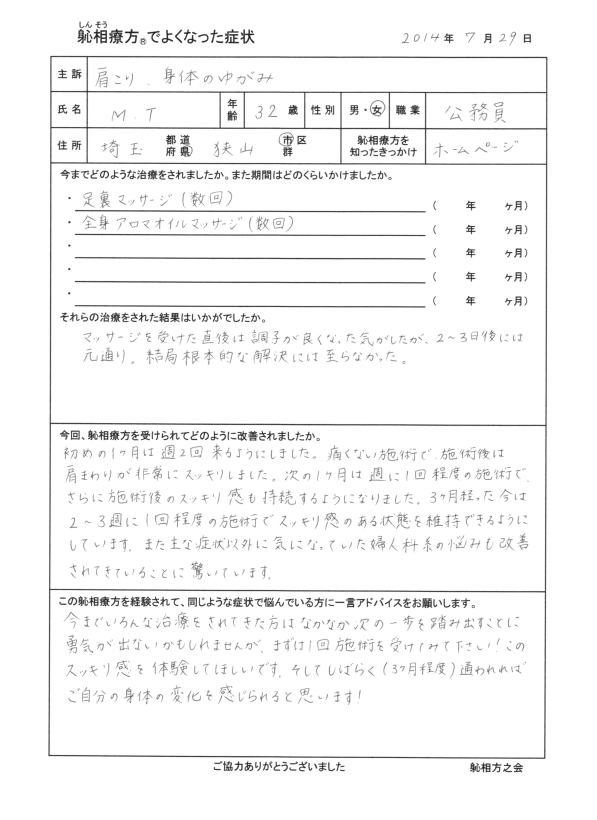 しんそう
䏮相療方®でよくなった症状
2014年 7月29日
主訴 肩こり、身体のゆがみ
氏名 M.T 年齢 32歳 性別 男・女 職業 公務員
住所 埼玉 都道府県 狭山 市区群 䏮相療方を知ったきっかけ ホームページ
今までどのような治療をされましたか。また期間はどのくらいかけましたか。
・足裏マッサージ(数回) ( 年 ヶ月)
・全身アロマオイルマッサージ(数回) ( 年 ヶ月)
・ ( 年 ヶ月)
・ ( 年 ヶ月)
・ ( 年 ヶ月)
それらの治療をされた結果はいかがでしたか。
マッサージを受けた直後は調子が良くなった気がしたが、2〜3日後には
元通り。結局根本的な解決には至らなかった。
今回、䏮相療方を受けられてどのように改善されましたか。
初めの1ヶ月は週2回来るようにしました。痛くない施術で、施術後は
肩まわりが非常にスッキリしました。次の1ヶ月は週に1回程度の施術で、
さらに施術後のスッキリ感も持続するようになりました。3ヶ月経った今は
2〜3週に1回程度の施術でスッキリ感のある状態を維持できるように
しています。また主な症状以外に気になっていた婦人科系の悩みも改善
されてきていることに驚いています。
この䏮相療方を経験されて、同じような症状で悩んでいる方に一言アドバイスをお願いします。
今までいろんな治療をされてきた方はなかなか次の一歩を踏み出すことに
勇気が出ないかもしれませんが、まずは1回施術を受けてみて下さい!この
スッキリ感を体験してほしいです。そしてしばらく(3ヶ月程度)通われれば
ご自分の身体の変化を感じられると思います!
ご協力ありがとうございました
䏮相方之会